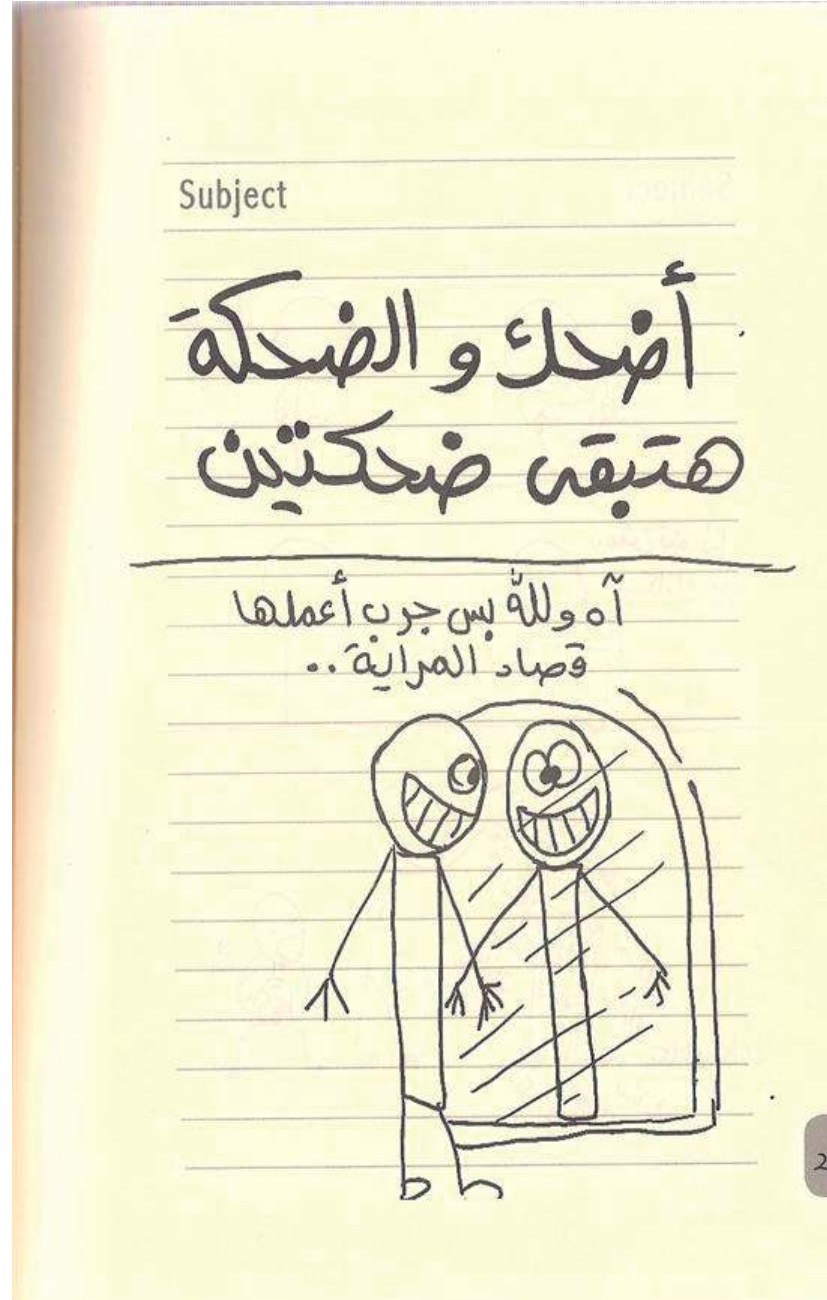 Subject
أضحك و الضحكة
هتبقى ضحكتين
آه ولله بس جرب أعملها
قصاد المراية..
2